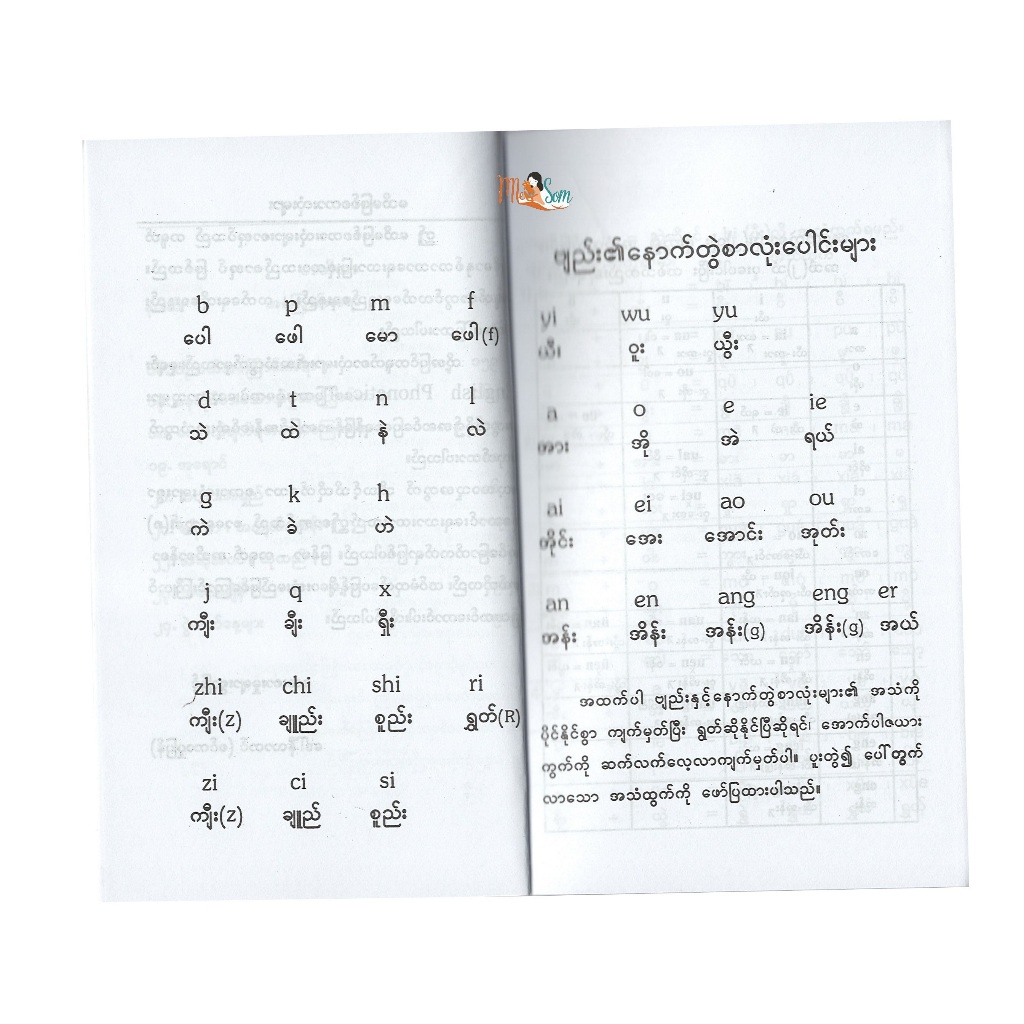 Me Som
b p m f
ပေါ ဖေါ မော ဖေါ(f)
d t n l
သဲ ထဲ နဲ လဲ
g k h
ကဲ ခဲ ဟဲ
j q x
ကျီး ချီး ရှီး
zhi chi shi ri
ကျီး(z) ချူည်း စူည်း ရွှတ်(R)
zi ci si
ကျီး(z) ချူည် စူည်း
ဗျည်း၏နောက်တွဲစာလုံးပေါင်းများ
yi wu yu
ယီး ဝူး ယွီး
a o e ie
အား အို အဲ ရယ်
ai ei ao ou
အိုင်း အေး အောင်း အုတ်း
an en ang eng er
အန်း အိန်း အန်း(g) အိန်း(g) အယ်
အထက်ပါ ဗျည်းနှင့်နောက်တွဲစာလုံးများ၏ အသံကို
ပိုင်နိုင်စွာ ကျက်မှတ်ပြီး ရွတ်ဆိုနိုင်ပြီဆိုရင်၊ အောက်ပါဇယား
ကွက်ကို ဆက်လက်လေ့လာကျက်မှတ်ပါ။ ပူးတွဲ၍ ပေါ်ထွက်
လာသော အသံထွက်ကို ဖော်ပြထားပါသည်။